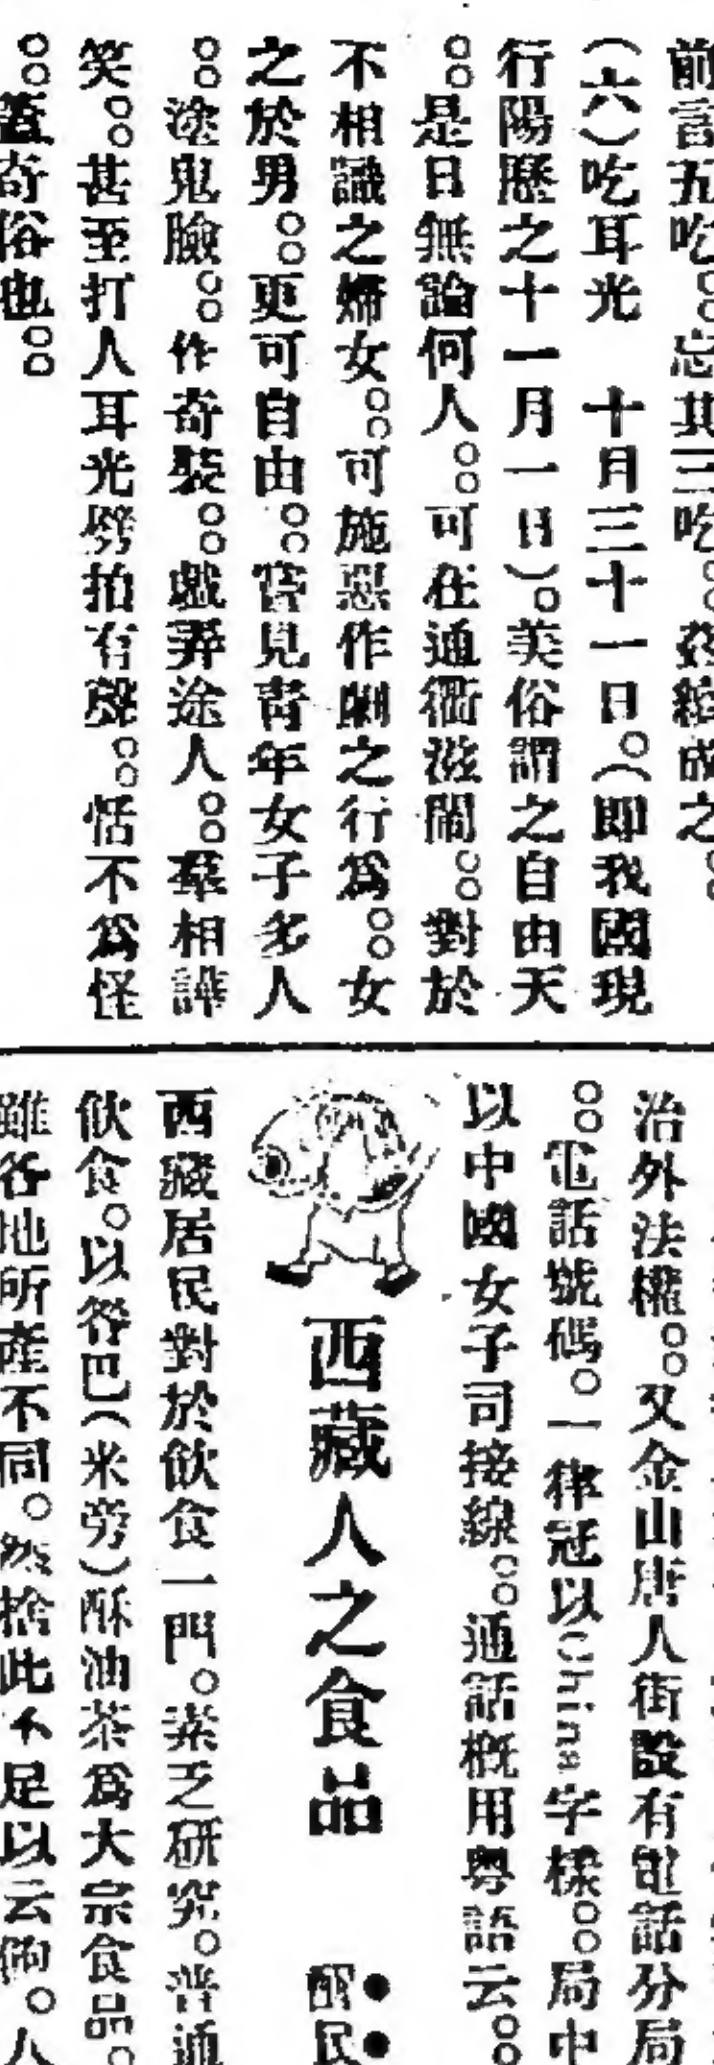 前言五吃。忘其三吃。茲續成之。
（六）吃耳光　十月三十一日。（即我國現
行陽歷之十一月一日）。美俗謂之自由天
。是日無論何人。可在通衢滋鬧。對於
不相識之婦女。可施惡作劇之行爲。女
之於男。更可自由。嘗見靑年女子多人
。塗鬼臉。作奇裝。戲弄途人。羣相譁
笑。甚至打人耳光劈拍有聲。恬不爲怪
。蓋奇俗也。
治外法權。又金山唐人街設有電話分局
。電話號碼。一律冠以China字樣。局中
以中國女子司接線。通話槪用粵語云。
西藏人之食品
醒民
西藏居民對於飮食一門。素乏研究。普通
飮食。以咎巴（米旁）酥油茶爲大宗食品。
雖各地所產不同。然捨此不足以云飽。人